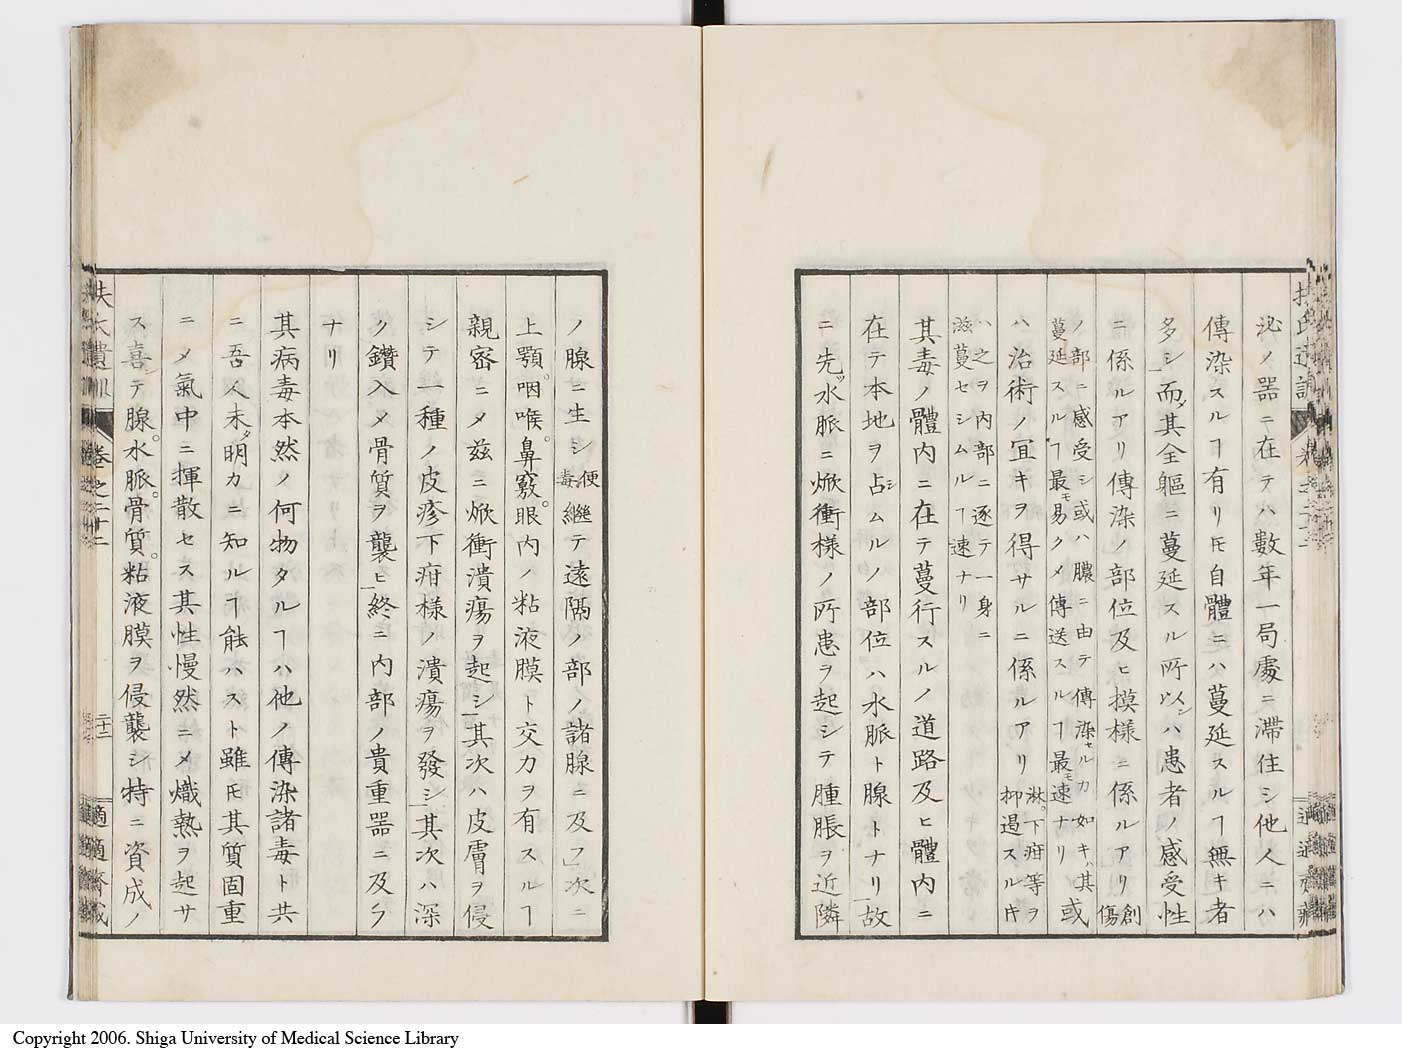 泌ノ器ニ在テハ數年一局處ニ滯住シ他人ニハ
傳染スルヿ有リ𪜈自體ニハ蔓延スルヿ無キ者
多シ而其全軀ニ蔓延スル所以ンハ患者ノ感受性
ニ係ルアリ傳染ノ部位及ヒ摸樣ニ係ルアリ創傷
ノ部ニ感受シ或ハ膿ニ由テ傳染セルカ如キハ其
蔓延スルヿ最モ易クメ傳送スルヿ最モ速ナリ或
ハ治術ノ冝キヲ得サルニ係ルアリ淋。下疳等ヲ抑遏スルキ
ハ之ヲ内部ニ逐テ一身ニ
滋蔓セシムルヿ速ナリ
其毒ノ體内ニ在テ蔓行スルノ道路及ヒ體内ニ
在テ本地ヲ占シムルノ部位ハ水脈ト腺トナリ故
ニ先ツ水脈ニ焮衝樣ノ所患ヲ起シテ腫脹ヲ近隣
扶氏遺訓
ノ腺ニ生シ便毒繼テ遠隔ノ部ノ諸腺ニ及フ次ニ
上顎。咽喉。鼻竅。眼内ノ粘液膜ト交力ヲ有スルヿ
親密ニメ茲ニ焮衝潰瘍ヲ起シ其次ハ皮膚ヲ侵
シテ一種ノ皮疹下疳樣ノ潰瘍ヲ發シ其次ハ深
ク鑽入メ骨質ヲ襲ヒ終ニ内部ノ貴重器ニ及フ
ナリ
其病毒本然ノ何物タルヿハ他ノ傳染諸毒ト共
ニ吾人未タ明カニ知ルヿ能ハスト雖𪜈其質固重
ニメ氣中ニ揮散セス其性慢然ニメ熾熱ヲ起サ
ス喜シテ腺。水脈。骨質。粘液膜ヲ侵襲シ特ニ資成ノ
扶氏遺訓 卷之二十二 二十二 適適齋藏
Copyright 2006. Shiga University of Medical Science Library